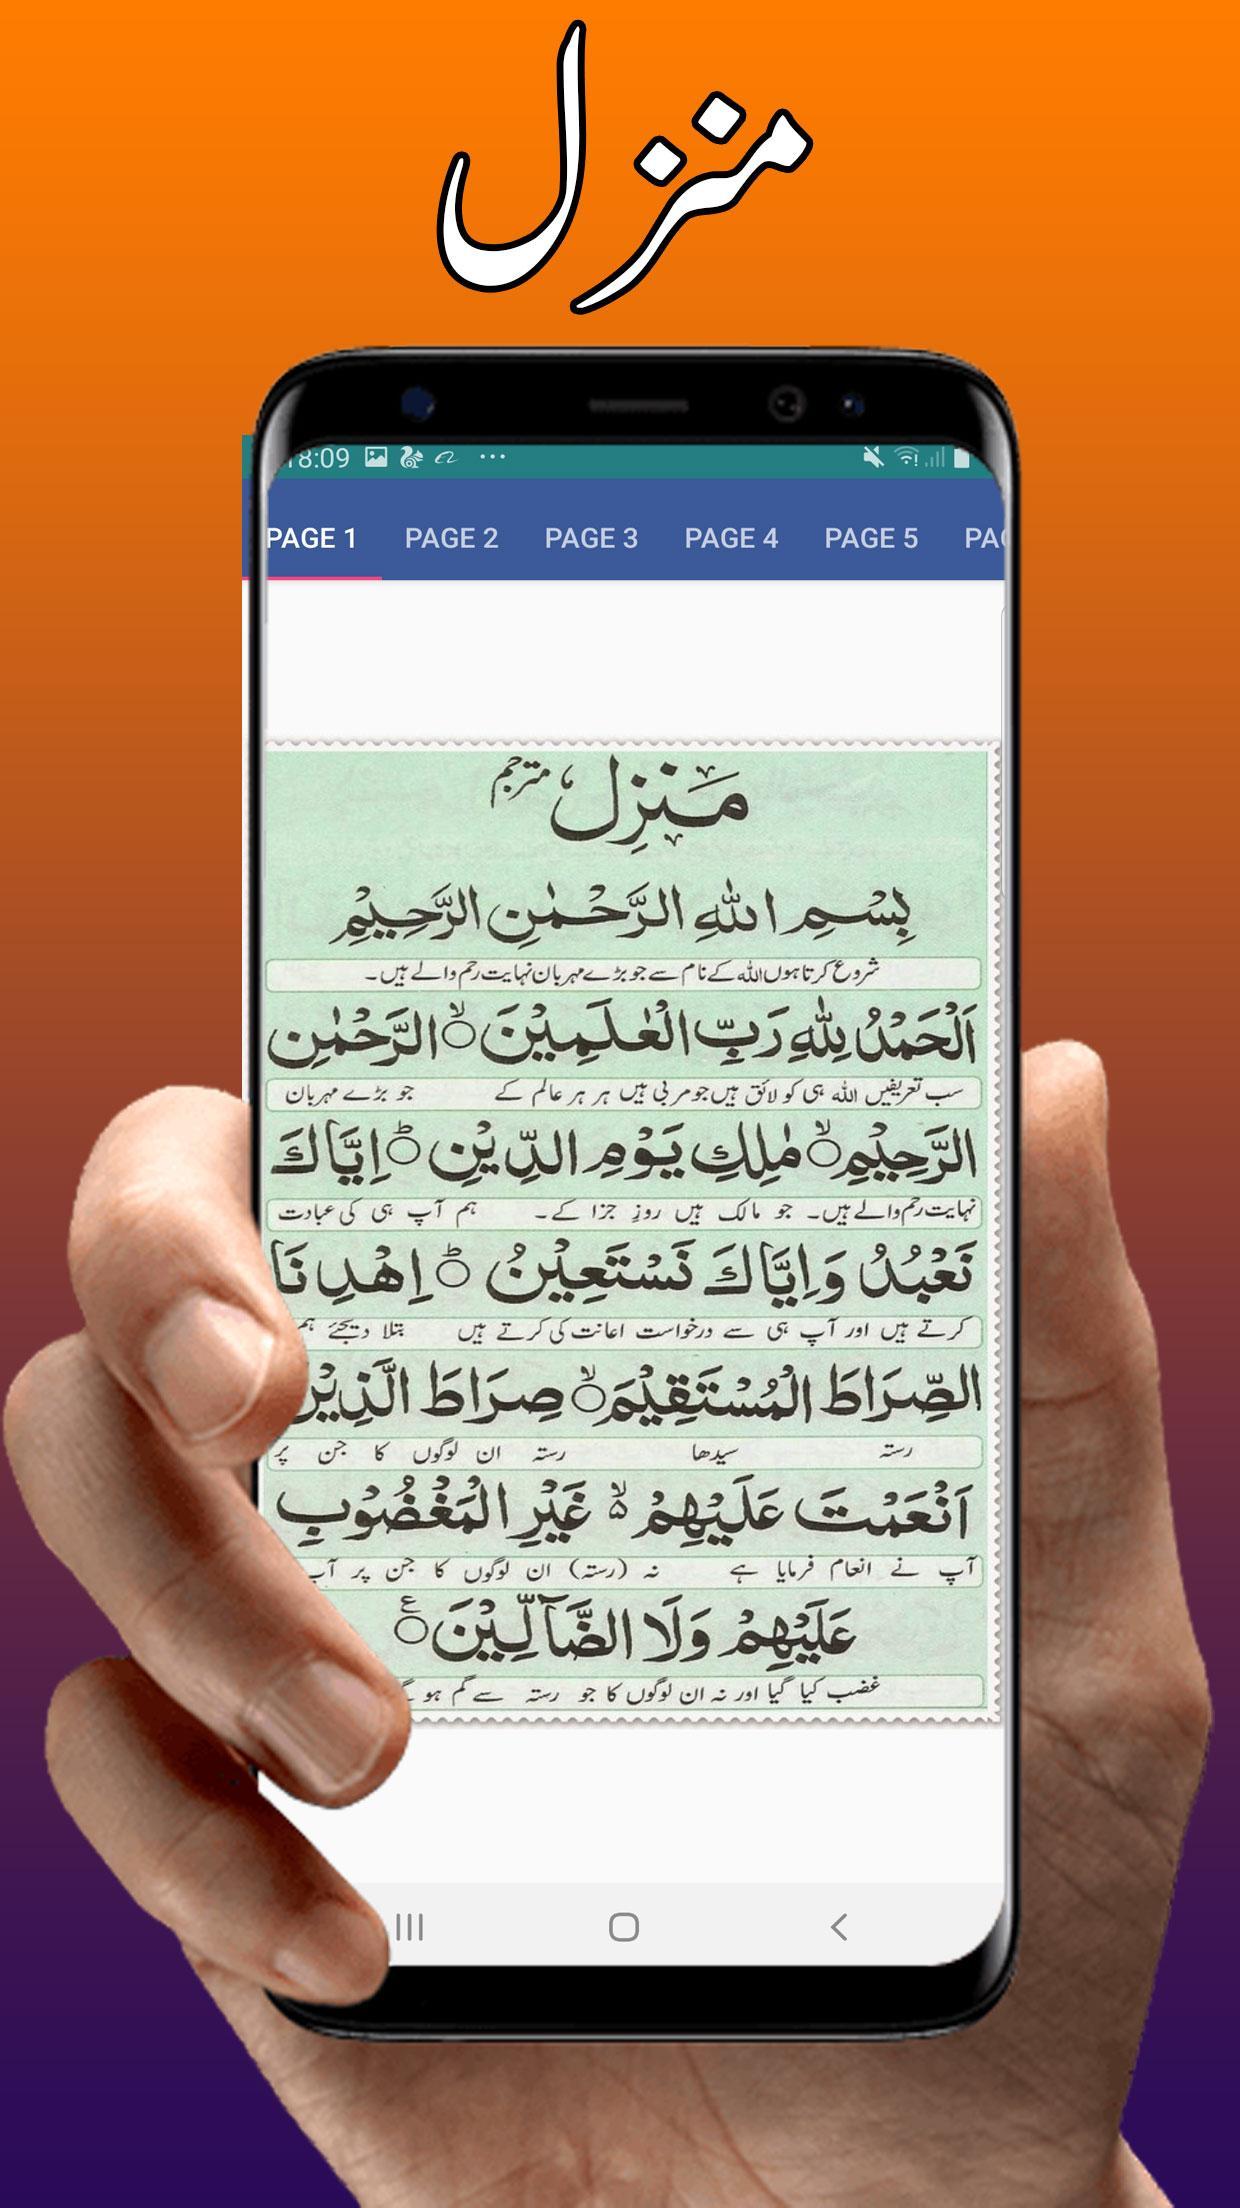 منزل
18:09
PAGE 1 PAGE 2 PAGE 3 PAGE 4 PAGE 5 PAG
مَنْزِل مترجم
بِسْمِ اللّٰهِ الرَّحْمٰنِ الرَّحِيْمِ
شروع کرتا ہوں اللہ کے نام سے جو بڑے مہربان نہایت رحم والے ہیں۔
اَلْحَمْدُ لِلّٰهِ رَبِّ الْعٰلَمِيْنَ ۙ الرَّحْمٰنِ
سب تعریفیں اللہ ہی کو لائق ہیں جو مربی ہیں ہر ہر عالم کے جو بڑے مہربان
الرَّحِيْمِ ۙ مٰلِكِ يَوْمِ الدِّيْنِ ؕ اِيَّاكَ
نہایت رحم والے ہیں۔ جو مالک ہیں روزِ جزا کے۔ ہم آپ ہی کی عبادت
نَعْبُدُ وَاِيَّاكَ نَسْتَعِيْنُ ؕ اِهْدِنَا
کرتے ہیں اور آپ ہی سے درخواست اعانت کی کرتے ہیں بتلا دیجئے ہم
الصِّرَاطَ الْمُسْتَقِيْمَ ۙ صِرَاطَ الَّذِيْنَ
رستہ سیدھا رستہ ان لوگوں کا جن پر
اَنْعَمْتَ عَلَيْهِمْ ۙ۵ غَيْرِ الْمَغْضُوْبِ
آپ نے انعام فرمایا ہے نہ (رستہ) ان لوگوں کا جن پر آپ
عَلَيْهِمْ وَلَا الضَّآلِّيْنَ ۝ ع
غضب کیا گیا اور نہ ان لوگوں کا جو رستہ سے گم ہو